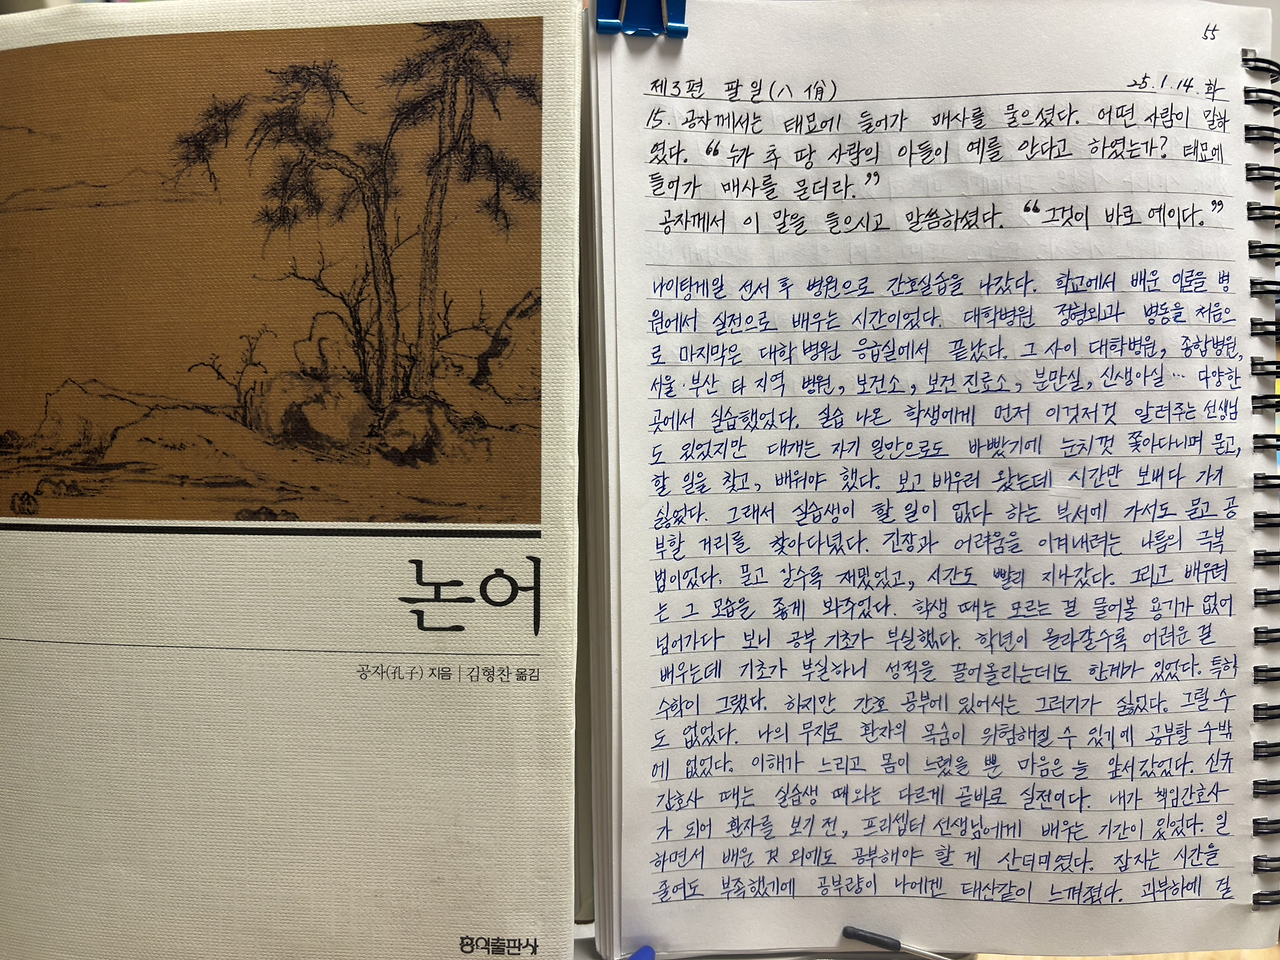 논어
공자(孔子) 지음 | 김형찬 옮김
홍익출판사
55
제3편 팔일(八佾) 25.1.14.화
15. 공자께서는 태묘에 들어가 매사를 물으셨다. 어떤 사람이 말하
였다. "누가 추 땅 사람의 아들이 예를 안다고 하였는가? 태묘에
들어가 매사를 묻더라."
공자께서 이 말을 들으시고 말씀하셨다. "그것이 바로 예이다."
나이팅게일 선서 후 병원으로 간호실습을 나갔다. 학교에서 배운 이론을 병
원에서 실전으로 배우는 시간이었다. 대학병원 정형외과 병동을 처음으
로 마지막은 대학병원 응급실에서 끝났다. 그 사이 대학병원, 종합병원,
서울·부산 타 지역 병원, 보건소, 보건 진료소, 분만실, 신생아실… 다양한
곳에서 실습했었다. 실습 나온 학생에게 먼저 이것저것 알려주는 선생님
도 있었지만 대개는 자기 일만으로도 바빴기에 눈치껏 쫓아다니며 묻고,
할 일을 찾고, 배워야 했다. 보고 배우러 왔는데 시간만 보내다 가기
싫었다. 그래서 실습생이 할 일이 없다 하는 부서에 가서도 묻고 공
부할 거리를 찾아다녔다. 긴장과 어려움을 이겨내려는 나름의 극복
법이었다. 묻고 알수록 재밌었고, 시간도 빨리 지나갔다. 그리고 배우려
는 그 모습을 좋게 봐주었다. 학생 때는 모르는 걸 물어볼 용기가 없어
넘어가다 보니 공부 기초가 부실했다. 학년이 올라갈수록 어려운 걸
배우는데 기초가 부실하니 성적을 끌어올리는데도 한계가 있었다. 특히
수학이 그랬다. 하지만 간호 공부에 있어서는 그러기가 싫었다. 그럴 수
도 없었다. 나의 무지로 환자의 목숨이 위험해질 수 있기에 공부할 수밖
에 없었다. 이해가 느리고 몸이 느렸을 뿐 마음은 늘 앞서갔었다. 신규
간호사 때는 실습생 때와는 다르게 곧바로 실전이다. 내가 책임간호사
가 되어 환자를 보기 전, 프리셉터 선생님에게 배우는 기간이 있었다. 일
하면서 배운 것 외에도 공부해야 할 게 산더미였다. 잠자는 시간을
줄여도 부족했기에 공부량이 나에겐 태산같이 느껴졌다. 과부하에 걸